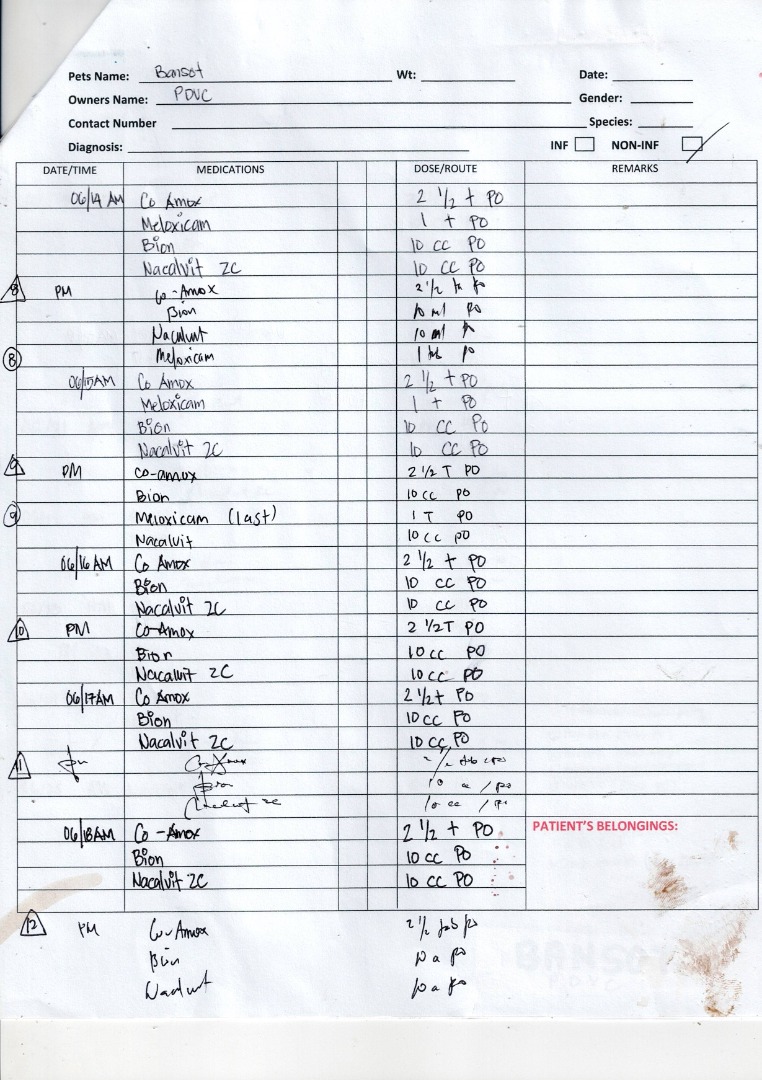 Pets Name: Bansot Wt: Date:
Owners Name: PDVC Gender:
Contact Number Species:
Diagnosis: INF NON-INF
DATE/TIME MEDICATIONS DOSE/ROUTE REMARKS
06/14 AM Co Amox 2 1/2 + PO
Meloxicam 1 + PO
Bion 10 cc PO
Nacalvit ZC 10 CC PO
8 PM Co-Amox 2 1/2 po
Bion 10 ml po
Nacalvit 10 ml
8 Meloxicam 1 tab po
06/15AM Co Amox 2 1/2 + PO
Meloxicam 1 + PO
Bion 10 CC PO
Nacalvit ZC 10 CC PO
9 PM Co-amox 2 1/2 T PO
Bion 10 cc PO
9 Meloxicam (last) 1 T PO
Nacalvit 10 cc PO
06/16 AM Co Amox 2 1/2 + PO
Bion 10 CC PO
Nacalvit ZC 10 CC PO
10 PM Co-Amox 2 1/2 T PO
Bion 10 cc PO
Nacalvit ZC 10 cc PO
06/17AM Co Amox 2 1/2 + PO
Bion 10 CC PO
Nacalvit ZC 10 CC PO
11 Co-Amox 2 1/2 tab po
Bion 10 cc / po
ZC 10 cc / po
06/18AM Co-Amox 2 1/2 + PO
PATIENT'S BELONGINGS:
Bion 10 CC PO
Nacalvit ZC 10 CC PO
12 PM Co-Amox 2 1/2 tab po
Bion 10 po
10 po